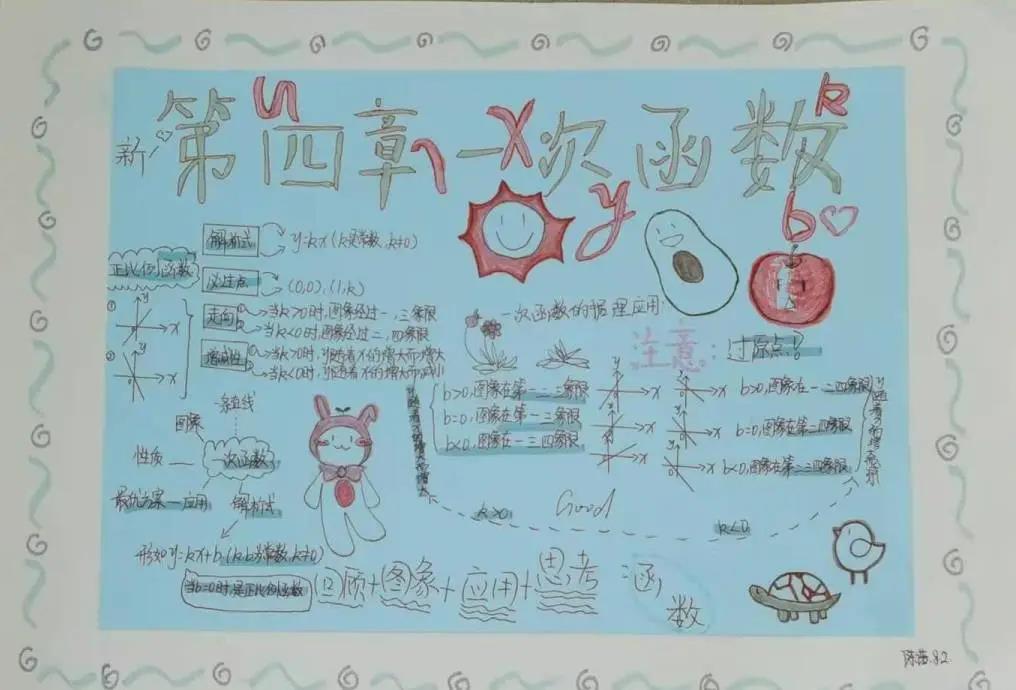 新
第四章 一次函数
y
x
k
y
b
解析式 y=kx(k是常数,k≠0)
正比例函数
必过点 (0,0),(1,k)
走向 当k>0时,图象经过一,三象限
当k<0时,图象经过二,四象限
增减性 当k>0时,y随着x的增大而增大
当k<0时,y随着x的增大而减小
① y x
② y x
一条直线
图象
性质 一次函数
最优方案—应用 解析式
形如y=kx+b(k,b为常数,k≠0)
当b=0时,是正比例函数
一次函数的
应用:
注意: 过原点!
b>0,图象在第一二三象限
b=0,图象在第一三象限
b<0,图象在一三四象限
b>0,图象在一二四象限
b=0,图象在第二四象限
b<0,图象在第二三四象限
k>0
Good
k<0
回顾+图象+应用+思考
函数
8.2